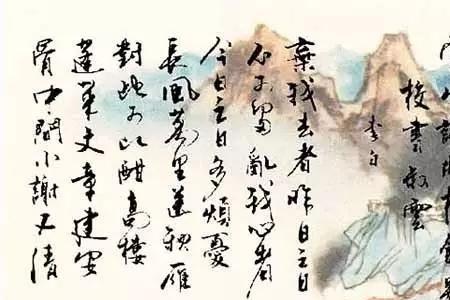 校書叔雲
李白
棄我去者昨日之日
不可留亂我心者
今日之日多煩憂
長風萬里送秋雁
對此可以酣高樓
蓬萊文章建安
骨中間小謝又清